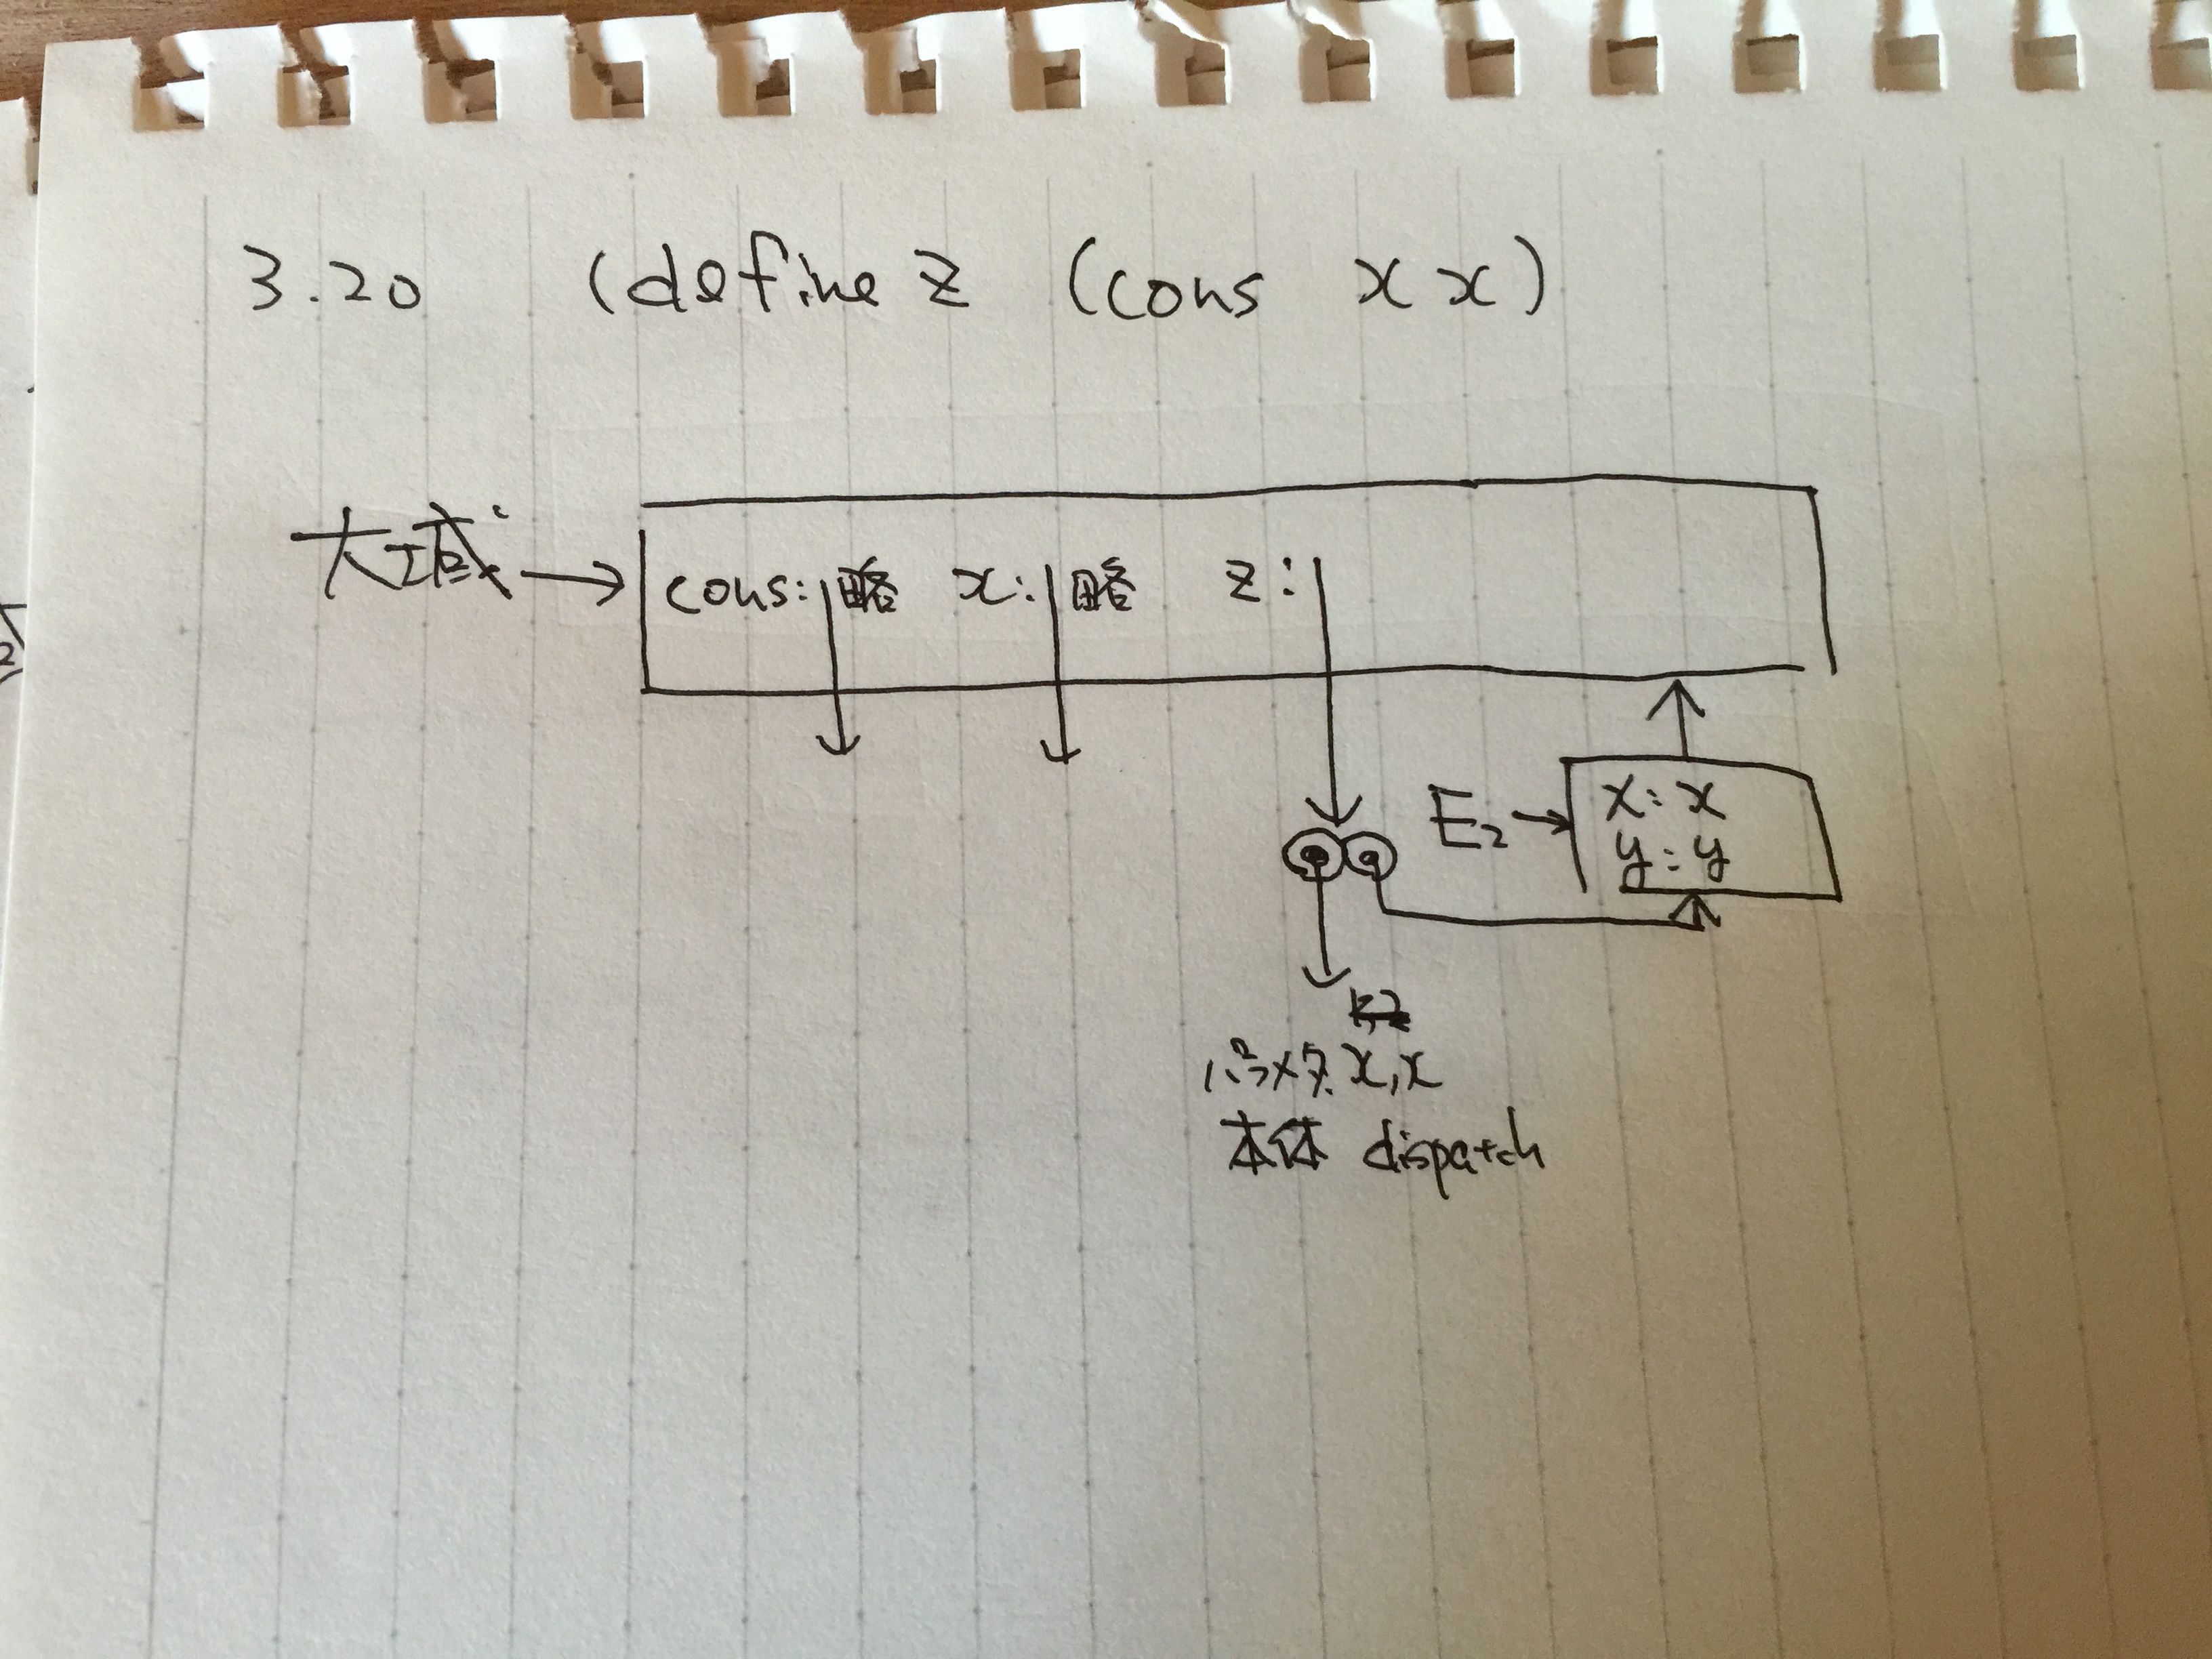 3.20 (define z (cons x x)
大域 → cons: 略 x: 略 z:
E2 → x: x
y: y
パラメタ x, x
本体 dispatch